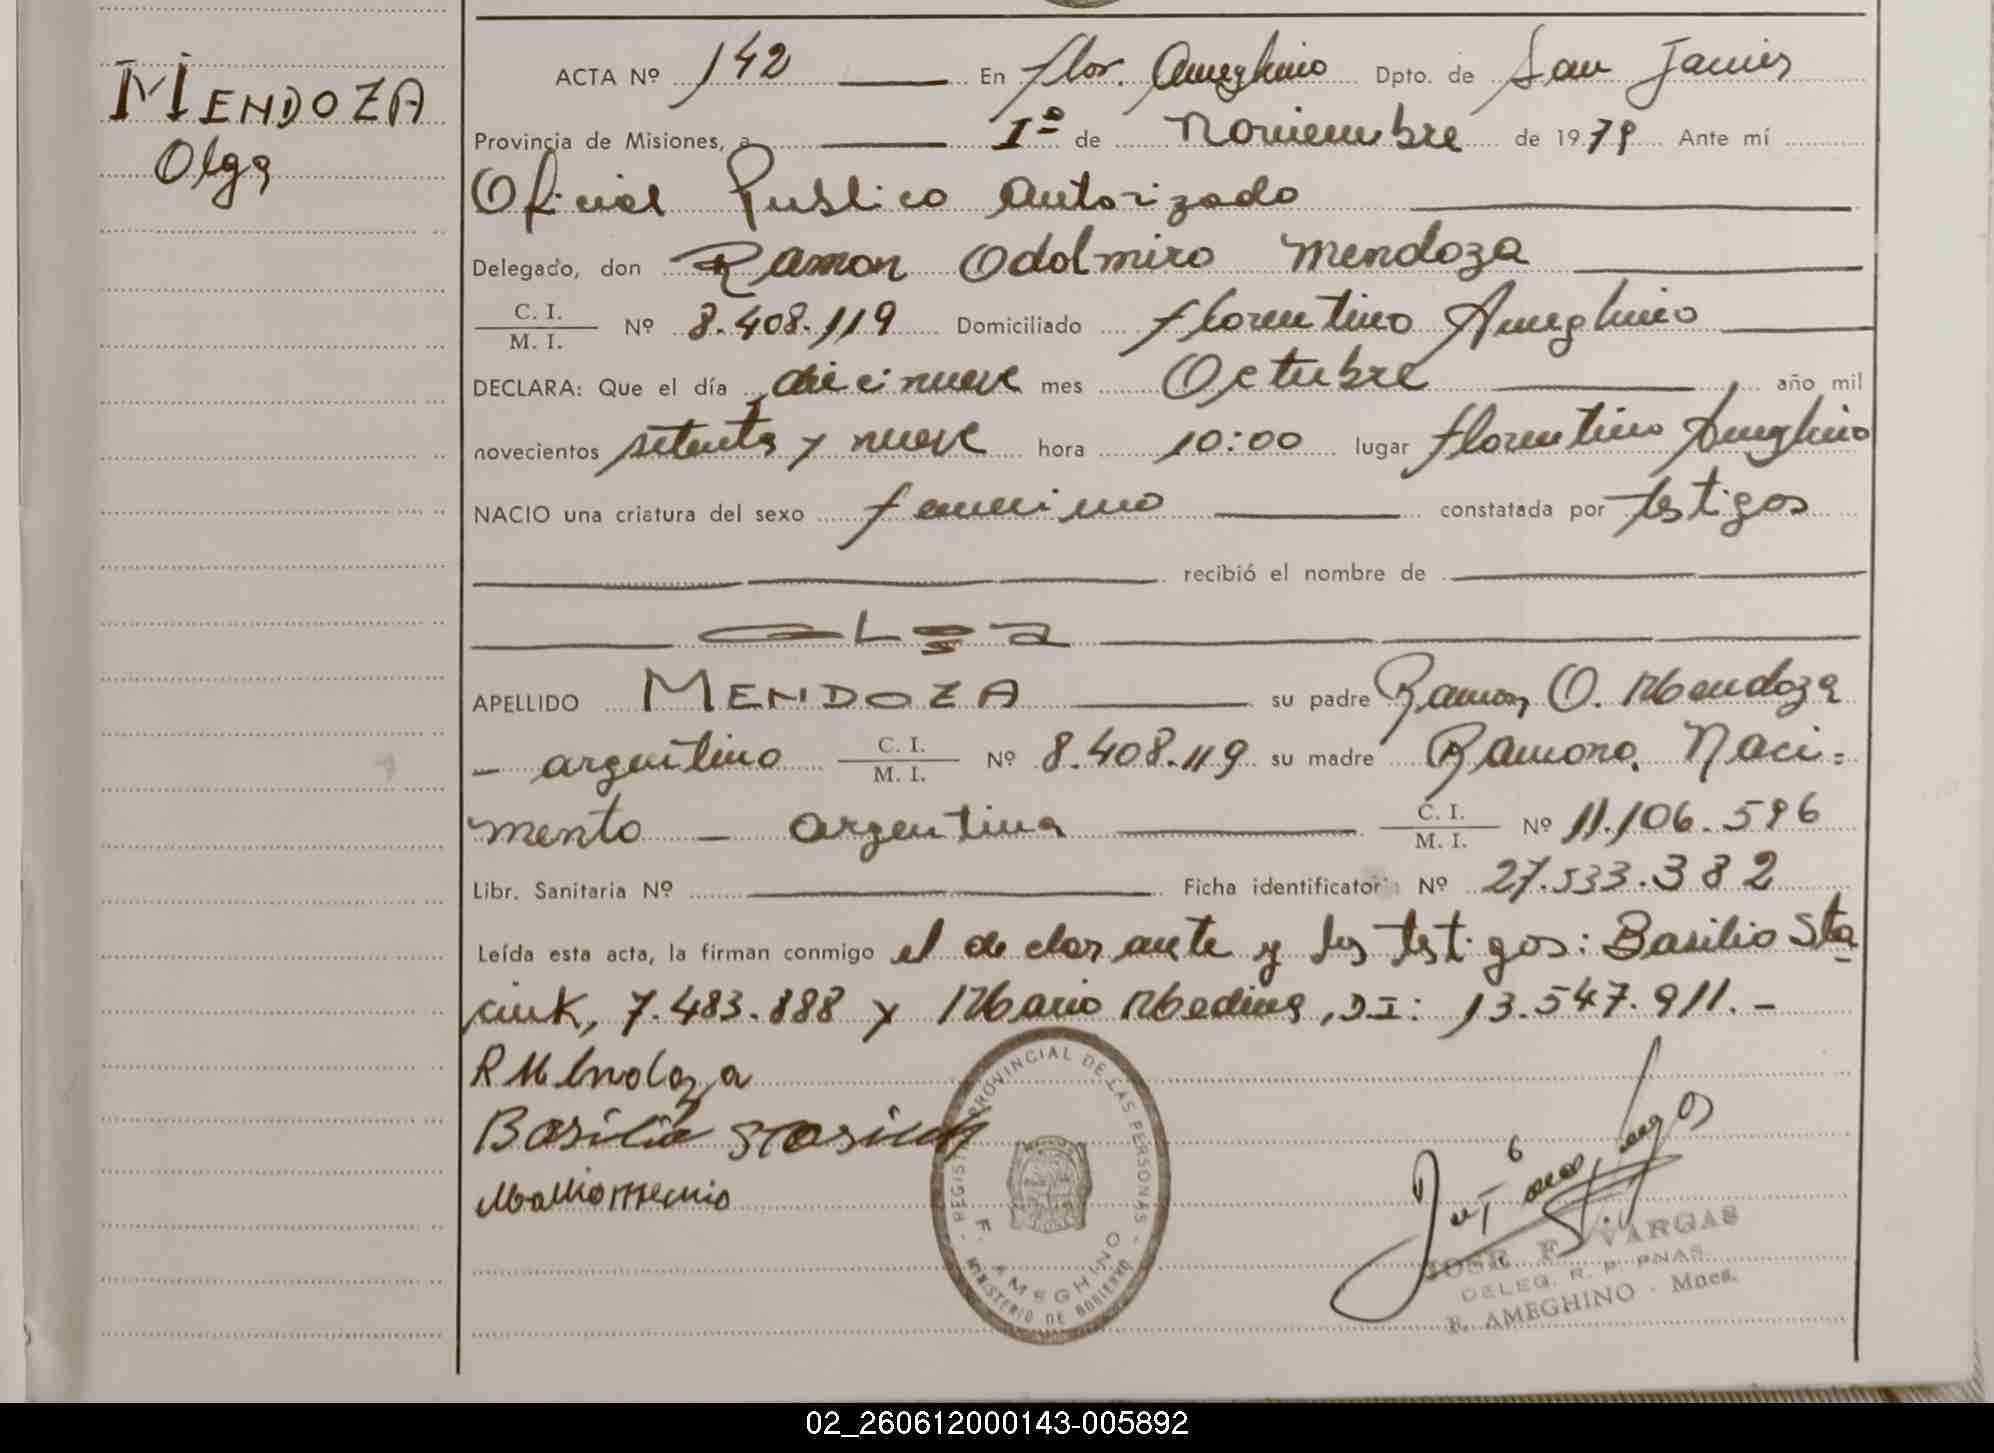 MENDOZA
Olga
ACTA Nº 142 En Flor. Ameghino Dpto. de San Javier
Provincia de Misiones, a 1º de Noviembre de 1979 Ante mí
Oficial Publico Autorizado
Delegado, don Ramon Odolmiro Mendoza
C. I.
M. I. Nº 8.408.119 Domiciliado Florentino Ameghino
DECLARA: Que el día diecinueve mes Octubre año mil
novecientos setenta y nueve hora 10:00 lugar Florentino Ameghino
NACIO una criatura del sexo femenino constatada por testigos
recibió el nombre de
OLGA
APELLIDO MENDOZA su padre Ramon O. Mendoza
- argentino C. I. M. I. Nº 8.408.119 su madre Ramona Naci=
mento - argentina C. I. M. I. Nº 11.106.596
Libr. Sanitaria Nº Ficha identificator Nº 27.533.382
Leída esta acta, la firman conmigo el declarante y los testigos: Basilio Sta
ciuk, 7.483.888 y Mario Medina, DI: 13.547.911.-
R Mendoza
Basilio Stasiuk
REGISTRO PROVINCIAL DE LAS PERSONAS
F. AMEGHINO
MINISTERIO DE GOBIERNO
JOSE F. VARGAS
DELEG. R. P. PNAS.
F. AMEGHINO - Mnes.
02_260612000143-005892